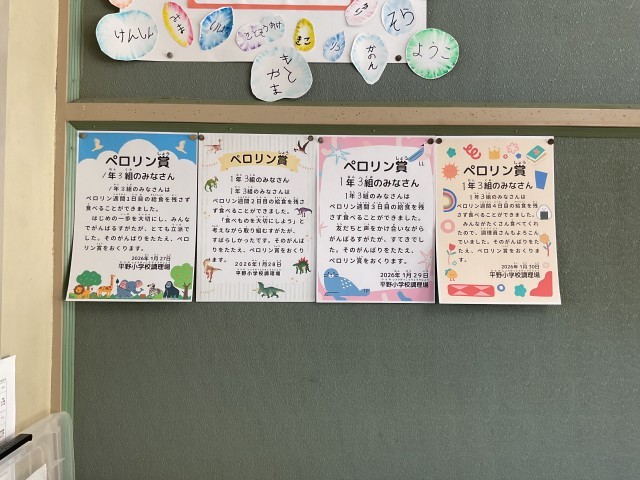 けんしん
さき
そら
きこ
かのん
ようこ
きとやま
ペロリン賞
1年3組のみなさん
1年3組のみなさんは
ペロリン週間1日目の給食を残さず
食べることができました。
はじめの一歩を大切にし、みんな
でがんばるすがたが、とても立派で
した。そのがんばりをたたえ、ペロ
リン賞をおくります。
2026年1月27日
平野小学校調理場
ペロリン賞
1年3組のみなさん
1年3組のみなさんは
ペロリン週間2日目の給食を残さ
ず食べることができました。
「食べものを大切にしよう」と
考えながら取り組むすがたが、
すばらしかったです。そのがんば
りをたたえ、ペロリン賞をおくり
ます。
2026年1月28日
平野小学校調理場
ペロリン賞
1年3組のみなさん
1年3組のみなさんは
ペロリン週間3日目の給食を残
さず食べることができました。
友だちと声をかけ合いながら
がんばるすがたが、すてきでし
た。そのがんばりをたたえ、ペ
ロリン賞をおくります。
2026年1月29日
平野小学校調理場
ペロリン賞
1年3組のみなさん
1年3組のみなさんは
ペロリン週間4日目の給食を残
さず食べることができました。
みんながたくさん食べてくれ
たので、調理員さんもよろこん
でいました。そのがんばりをたた
え、ペロリン賞をおくります。
2026年1月30日
平野小学校調理場